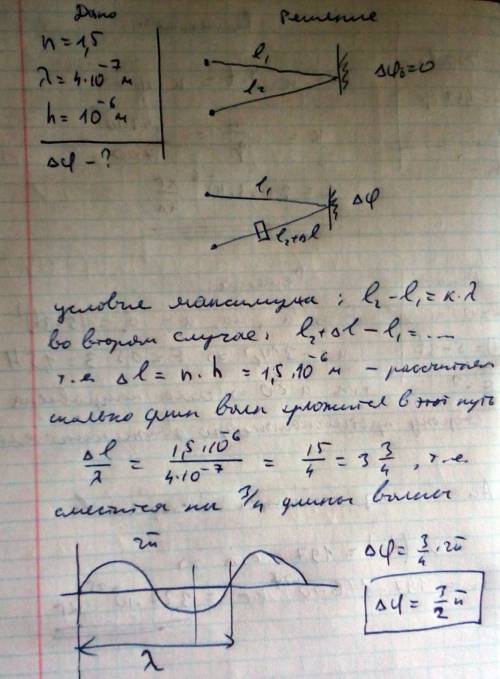 Дано
Решение
n = 1,5
λ = 4·10⁻⁷ м
h = 10⁻⁶ м
Δφ - ?
l₁
l₂
Δφ₀ = 0
l₁
l₂+Δl
Δφ
условие максимума : l₂ - l₁ = к·λ
во втором случае : l₂ + Δl - l₁ = ....
т.е Δl = n·h = 1,5·10⁻⁶ м - рассчитаем
сколько длин волн уложится в этот путь
Δl/λ = 1,5·10⁻⁶/4·10⁻⁷ = 15/4 = 3 3/4, т.е.
сместится на 3/4 длины волны
2π
λ
Δφ = 3/4·2π
Δφ = 3/2 π